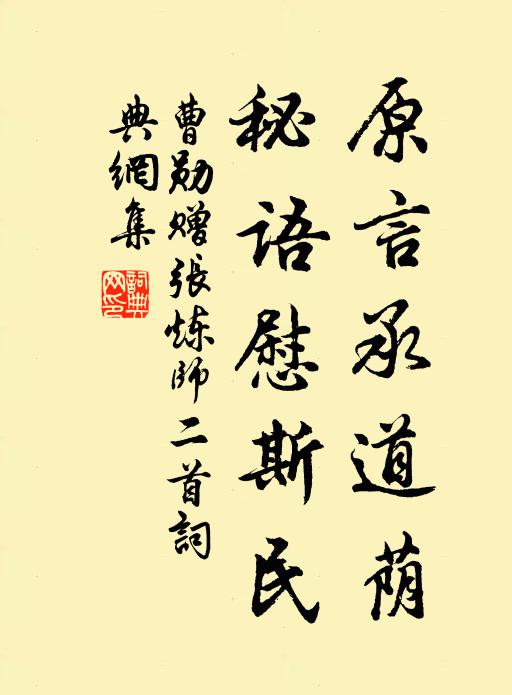 原言承道荫
秘语慰斯民
曹勋赠張炼师二首詞
典網集
詞典网印